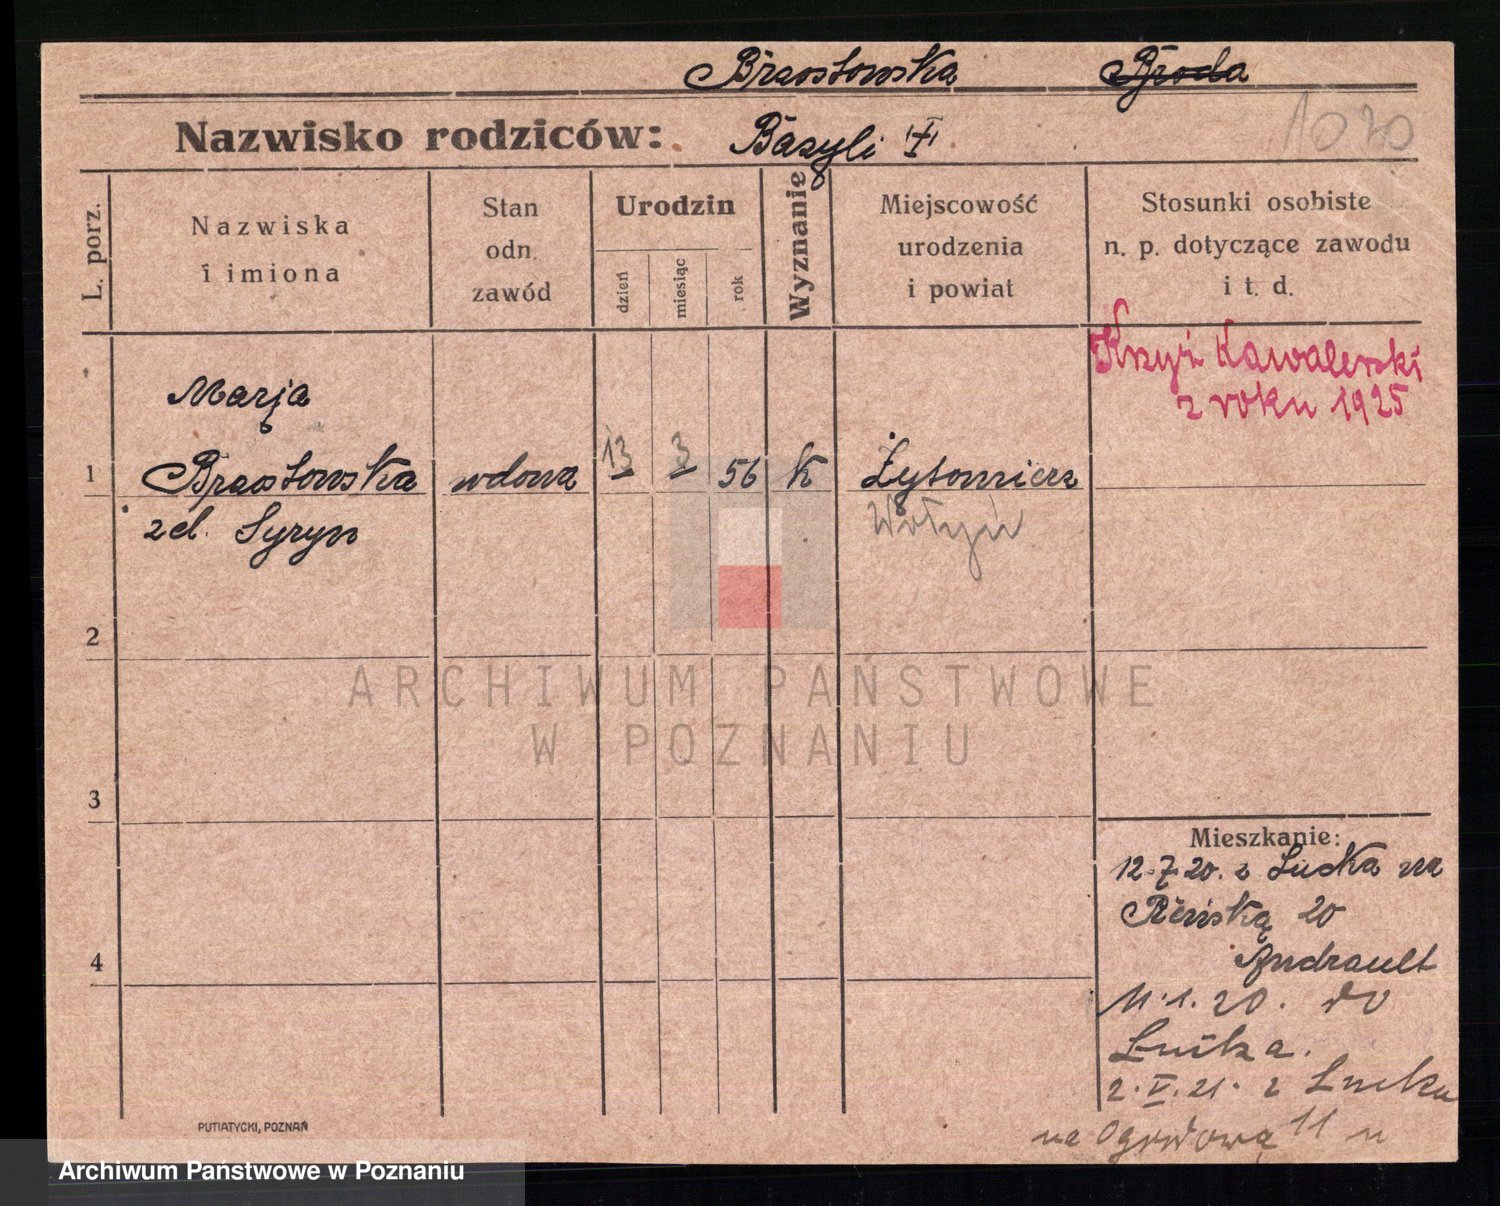 Brzostowska Broda
Nazwisko rodziców: Bazyli
1020
L. porz.
Nazwiska
i imiona
Stan
odn.
zawód
Urodzin
dzień
miesiąc
rok
Wyznanie
Miejscowość
urodzenia
i powiat
Stosunki osobiste
n. p. dotyczące zawodu
i t. d.
Krzyż Kawalerski
z roku 1925
Marja
1 Brzostowska wdowa 13 3 56 k Żytomierz
zd. Syryn
Wołyń
2
3
4
ARCHIWUM PAŃSTWOWE
W POZNANIU
Mieszkanie:
12.7.20. z Łucka na
20
11.1.20. do
Łucka.
2.V.21. z Łucka
na Ogrodową 11
PUTIATYCKI, POZNAŃ
Archiwum Państwowe w Poznaniu